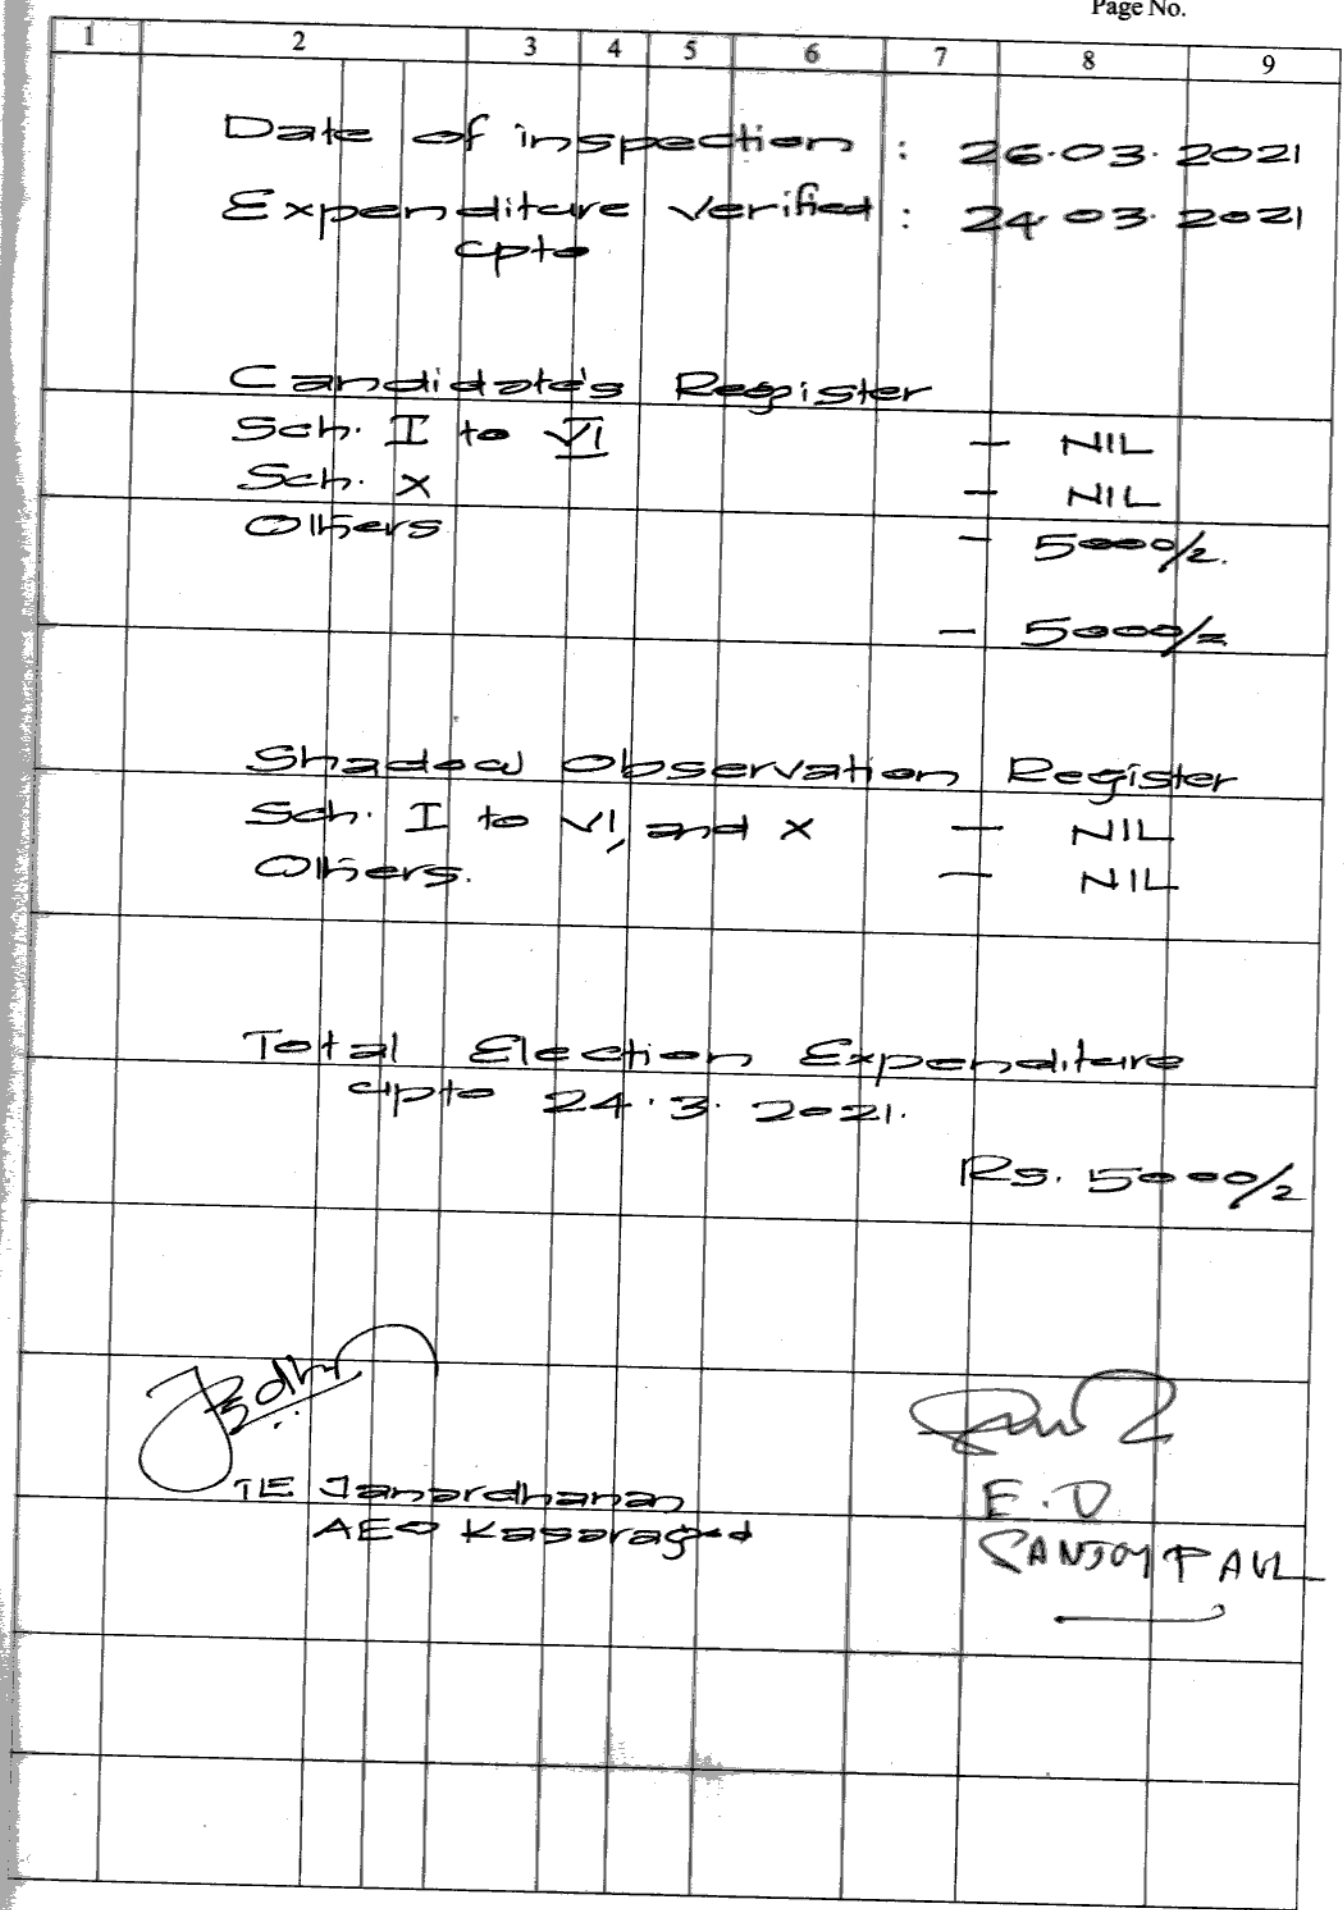 Page No.
1 2 3 4 5 6 7 8 9
Date of inspection : 26.03.2021
Expenditure verified : 24.03.2021
upto
Candidate's Register
Sch. I to VI - NIL
Sch. X - NIL
Others - 5000/=
- 5000/=
Shadow Observation Register
Sch. I to VI, and X - NIL
Others. - NIL
Total Election Expenditure
upto 24.3.2021.
Rs. 5000/=
TE Janardhanan
AEO Kasaragod
E.O
SANJOY PAUL